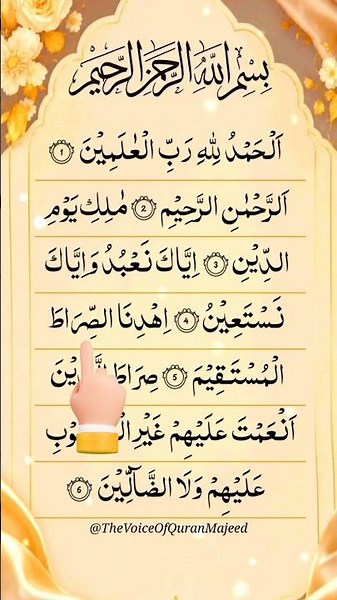 بِسْمِ اللهِ الرَّحْمٰنِ الرَّحِيْمِ
اَلْحَمْدُ لِلّٰهِ رَبِّ الْعٰلَمِيْنَ ١
الرَّحْمٰنِ الرَّحِيْمِ ٢ مٰلِكِ يَوْمِ
الدِّيْنِ ٣ اِيَّاكَ نَعْبُدُ وَاِيَّاكَ
نَسْتَعِيْنُ ٤ اِهْدِنَا الصِّرَاطَ
الْمُسْتَقِيْمَ ٥ صِرَاطَ
اَنْعَمْتَ عَلَيْهِمْ غَيْرِ
عَلَيْهِمْ وَلَا الضَّآلِّيْنَ ٦
@TheVoiceOfQuranMajeed